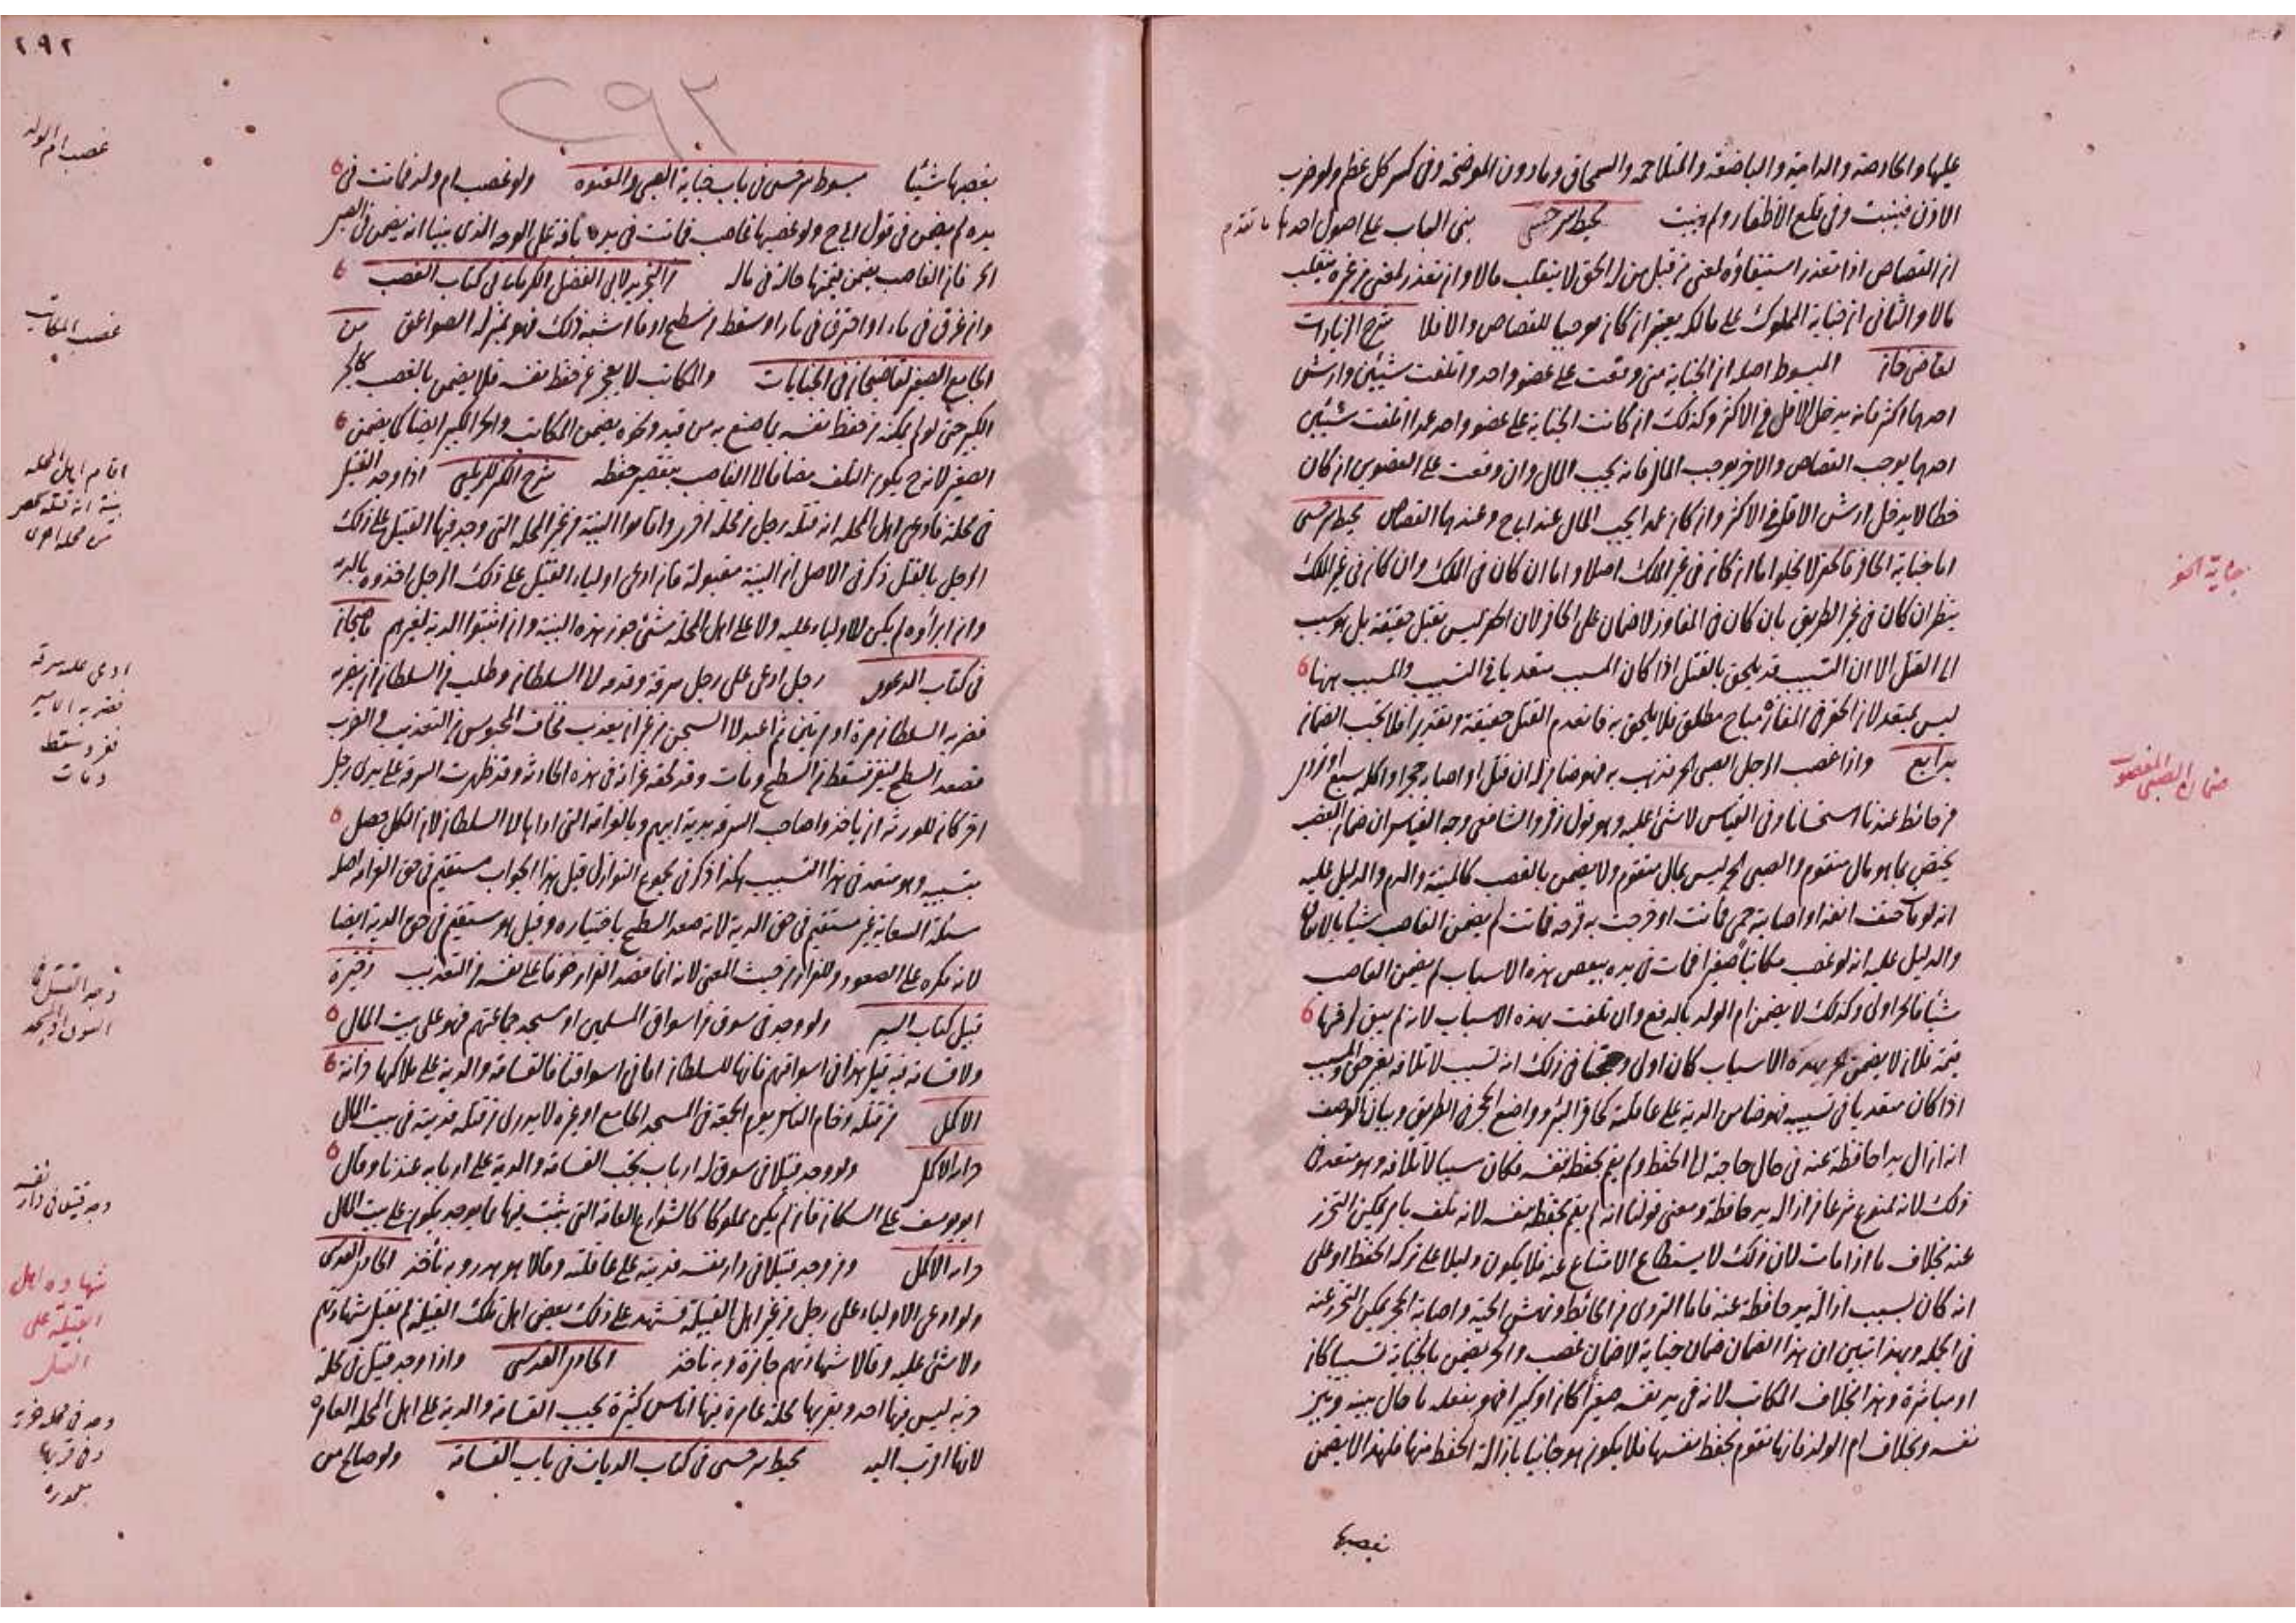 عليها والحارصة والدامية والباضعة والمتلاحمة والسمحاق ومادون الموضحة وفى كسر كل عظم ولو ضرب
الاذن فيبست وفى قلع الأظفار ولم ينبت محيط سرخسى بنى الباب على اصول احدها ما تقدم
ان القصاص اذا تعذر استيفاؤه لمعنى من قبل من له الحق لا ينقلب مالا وان تعذر لمعنى من غيره ينقلب
مالا والثانى ان جناية المملوك على مالكه يعتبر ان كان موجبا للقصاص والا فلا شرح الزيادات
لقاضى خان المبسوط اصله ان الجناية متى وقعت على عضو واحد واتلفت شيئين وارش
احدهما اكثر فانه يدخل الاقل فى الاكثر وكذلك ان كانت الجناية على عضو واحد عمدا اتلفت شيئين
احدهما يوجب القصاص والاخر يوجب المال فانه يجب المال وان وقعت على العضوين ان كان
خطا لا يدخل ارش الاقل فى الاكثر وان كان عمدا يجب المال عند ابى ح وعندهما القصاص محيط سرخسى
اما جناية الحافر فالحفر لا يخلوا اما ان كان فى غير الملك اصلا واما ان كان فى الملك وان كان فى غير الملك
ينظر ان كان فى غير الطريق بان كان فى المفاوز لا ضمان على الحافر لان الحفر ليس بقتل حقيقة بل هو سبب
الى القتل الا ان التسبيب قد يلحق بالقتل اذا كان المسبب متعديا فى التسبيب والمسبب ههنا
ليس بمتعد لان الحفر فى المفازة مباح مطلق فلا يلحق به فانعدم القتل حقيقة وتقديرا فلا يجب الضمان
بدايع واذا غصب الرجل الصبى الحر فذهب به فهو ضامن له ان قتل او اصابه حجر او اكله سبع او تردى
من حائط عندنا استحسانا وفى القياس لا شئ عليه وهو قول زفر والشافعى وجه القياس ان ضمان الغصب
يختص بما هو مال متقوم والصبى الحر ليس بمال متقوم ولا يضمن بالغصب كالميتة والدم والدليل عليه
انه لو مات حتف انفه او اصابته حمى فمات او خرجت به قرحة فمات لم يضمن الغاصب شيئا بالاتفاق
والدليل عليه انه لو غصب مكاتبا صغيرا فمات فى يده ببعض هذه الاسباب لم يضمن الغاصب
شيأ فالحر اولى وكذلك لا يضمن ام الولد بالدفع وان تلفت بهذه الاسباب لانه لم يبق لرقها
قيمة فلان لا يضمن الحر بهذه الاسباب كان اولى وحجتنا فى ذلك انه تسبب لاتلافه بغير حق والمسبب
اذا كان متعديا فى تسببه فهو ضامن الدية على عاقلته كحافر البئر وواضع الحجر فى الطريق وبيان الوصف
انه ازال يدا حافظة عنه فى حال حاجته الى الحفظ ولم يقم بحفظ نفسه فكان سببا لاتلافه وهو متعد فى
ذلك لانه ممنوع شرعا من ازالة يد حافظة ومعنى قولنا انه لم يقم بحفظ نفسه لانه تلف بامر يمكن التحرز
عنه بخلاف ما اذا مات لان ذلك لا يستطاع الامتناع عنه فلا يكون دليلا على تركه الحفظ او على
انه كان بسبب ازالة يد حافظة عنه فاما التردى من الحائط ونهش الحية واصابة الحجر يمكن التحرز عنه
فى الجملة وبهذا تبين ان هذا الضمان ضمان جناية لا ضمان غصب والحر يضمن بالجناية تسبيبا كان
او مباشرة وهذا بخلاف المكاتب لانه فى يد نفسه صغيرا كان او كبيرا فهو بفعله ما حال بينه وبين
نفسه وبخلاف ام الولد فانها تقوم بحفظ نفسها فلا يكون هو جانيا بازالة الحفظ منها فلهذا لا يضمن
بغصبها
جناية الحفر
ضمان الصبى المغصوب
٢٩٢
٢٩٢
بغصبها شيئا مبسوط سرخسى فى باب جناية الصبى والمعتوه ولو غصب ام ولد فماتت فى
يده لم يضمن فى قول ابى ح ولو غصبها غاصب فماتت فى يده بآفة على الوجه الذى بينا انه يضمن فى الصبى
الحر فان الغاصب يضمن قيمتها حالة فى ماله من التجريد لابى الفضل الكرمانى فى كتاب الغصب
وان غرق فى ماء او احترق فى نار او سقط من سطح او ما اشبه ذلك فهو بمنزلة الصواعق من
الجامع الصغير لقاضيخان فى الجنايات والمكاتب لا يعجز عن حفظ نفسه فلا يضمن بالغصب كالحر
الكبير حتى لو لم يمكنه من حفظ نفسه بما صنع به من قيد ونحوه يضمن المكاتب والحر الكبير ايضا كما يضمن
الصغير لانه ح يكون التلف مضافا الى الغاصب بتقصير حفظه شرح الكنز للزيلعى اذا وجد القتيل
فى محلة فادعى اهل المحلة انه قتله رجل من محلة اخرى واقاموا البينة من غير المحلة التى وجد فيها القتيل على ذلك
الرجل بالقتل ذكر فى الاصل ان البينة مقبولة فان ادعى اولياء القتيل على ذلك الرجل اخذوه بالدية
وان ابرأوه لم يكن للاولياء عليه ولا على اهل المحلة شئ جوز هذه البينة وان اثبتوا الدية لغيرهم قاضيخان
فى كتاب الدعوى رجل ادعى على رجل سرقة وقدمه الى السلطان وطلب من السلطان ان يضربه
فضربه السلطان مرة او مرتين ثم اعيد الى السجن من غير ان يعذب فخاف المحبوس من التعذيب والضرب
فصعد السطح ليفر فسقط من السطح ومات وقد لحقه غرامة فى هذه الحادثة وقد ظهرت السرقة على يدى رجل
اخر كان للورثة ان ياخذوا صاحب السرقة بدية ابيهم وبالغرامة التى اداها الى السلطان لان الكل حصل
بتسبيبه وهو متعد فى هذا التسبيب هكذا ذكر فى مجموع النوازل قيل هذا الجواب مستقيم فى حق الغرامة اصله
مسئلة السعاية غير مستقيم فى حق الدية لانه صعد السطح باختياره وقيل هو مستقيم فى حق الدية ايضا
لانه مكره على الصعود والفرار من حيث المعنى لانه انما قصد الفرار خوفا على نفسه من التعذيب ذخيرة
قبيل كتاب السير ولو وجد فى سوق من اسواق المسلمين او مسجد جماعتهم فهو على بيت المال
ولا قسامة فيه قيل هذا فى اسواقهم فانها للسلطان اما فى اسواقنا فالقسامة والدية على ملاكها خزانة
الاكمل من قتله زحام الناس يوم الجمعة فى المسجد الجامع او غيره لا يدرى من قتله فديته فى بيت المال
خزانة الاكمل ولو وجد قتيلا فى سوق له ارباب يجب القسامة والدية على اربابه عندنا وقال
ابو يوسف على السكان فان لم يكن مملوكا كالشوارع العامة التى بنيت فيها فما يوجد يكون على بيت المال
خزانة الاكمل ومن وجد قتيلا فى دار نفسه فديته على عاقلته وقالا هو هدر وبه نأخذ الحاوى القدسى
ولو ادعى الاولياء على رجل من غير اهل القبيلة فشهد على ذلك بعض اهل تلك القبيلة لم تقبل شهادتهم
ولا شئ عليه وقالا شهادتهم جائزة وبه ناخذ الحاوى القدسى واذا وجد قتيل فى محلة
خربة ليس فيها احد وبقربها محلة عامرة فيها اناس كثيرة يجب القسامة والدية على اهل المحلة العامرة
لانها اقرب اليه محيط سرخسى فى كتاب الديات فى باب القسامة ولو صالح من
غصب ام الولد
غصب المكاتب
اقام اهل المحلة
بينة انه قتله شخص
من محلة اخرى
ادعى عليه سرقة
فضربه الامير
ففر وسقط
ومات
وجد القتيل فى
السوق او المسجد
وجد قتيلا فى دار نفسه
شهادة اهل
القبيلة على
القتل
وجد فى محلة خربة
وفى قربها
معمورة